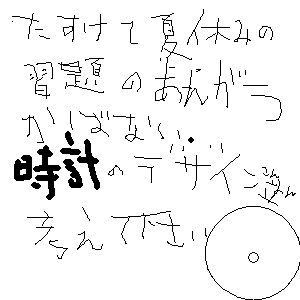 たすけて夏休みの
習題のあんがう
かばない
時計のデザイン案
考えて下さい